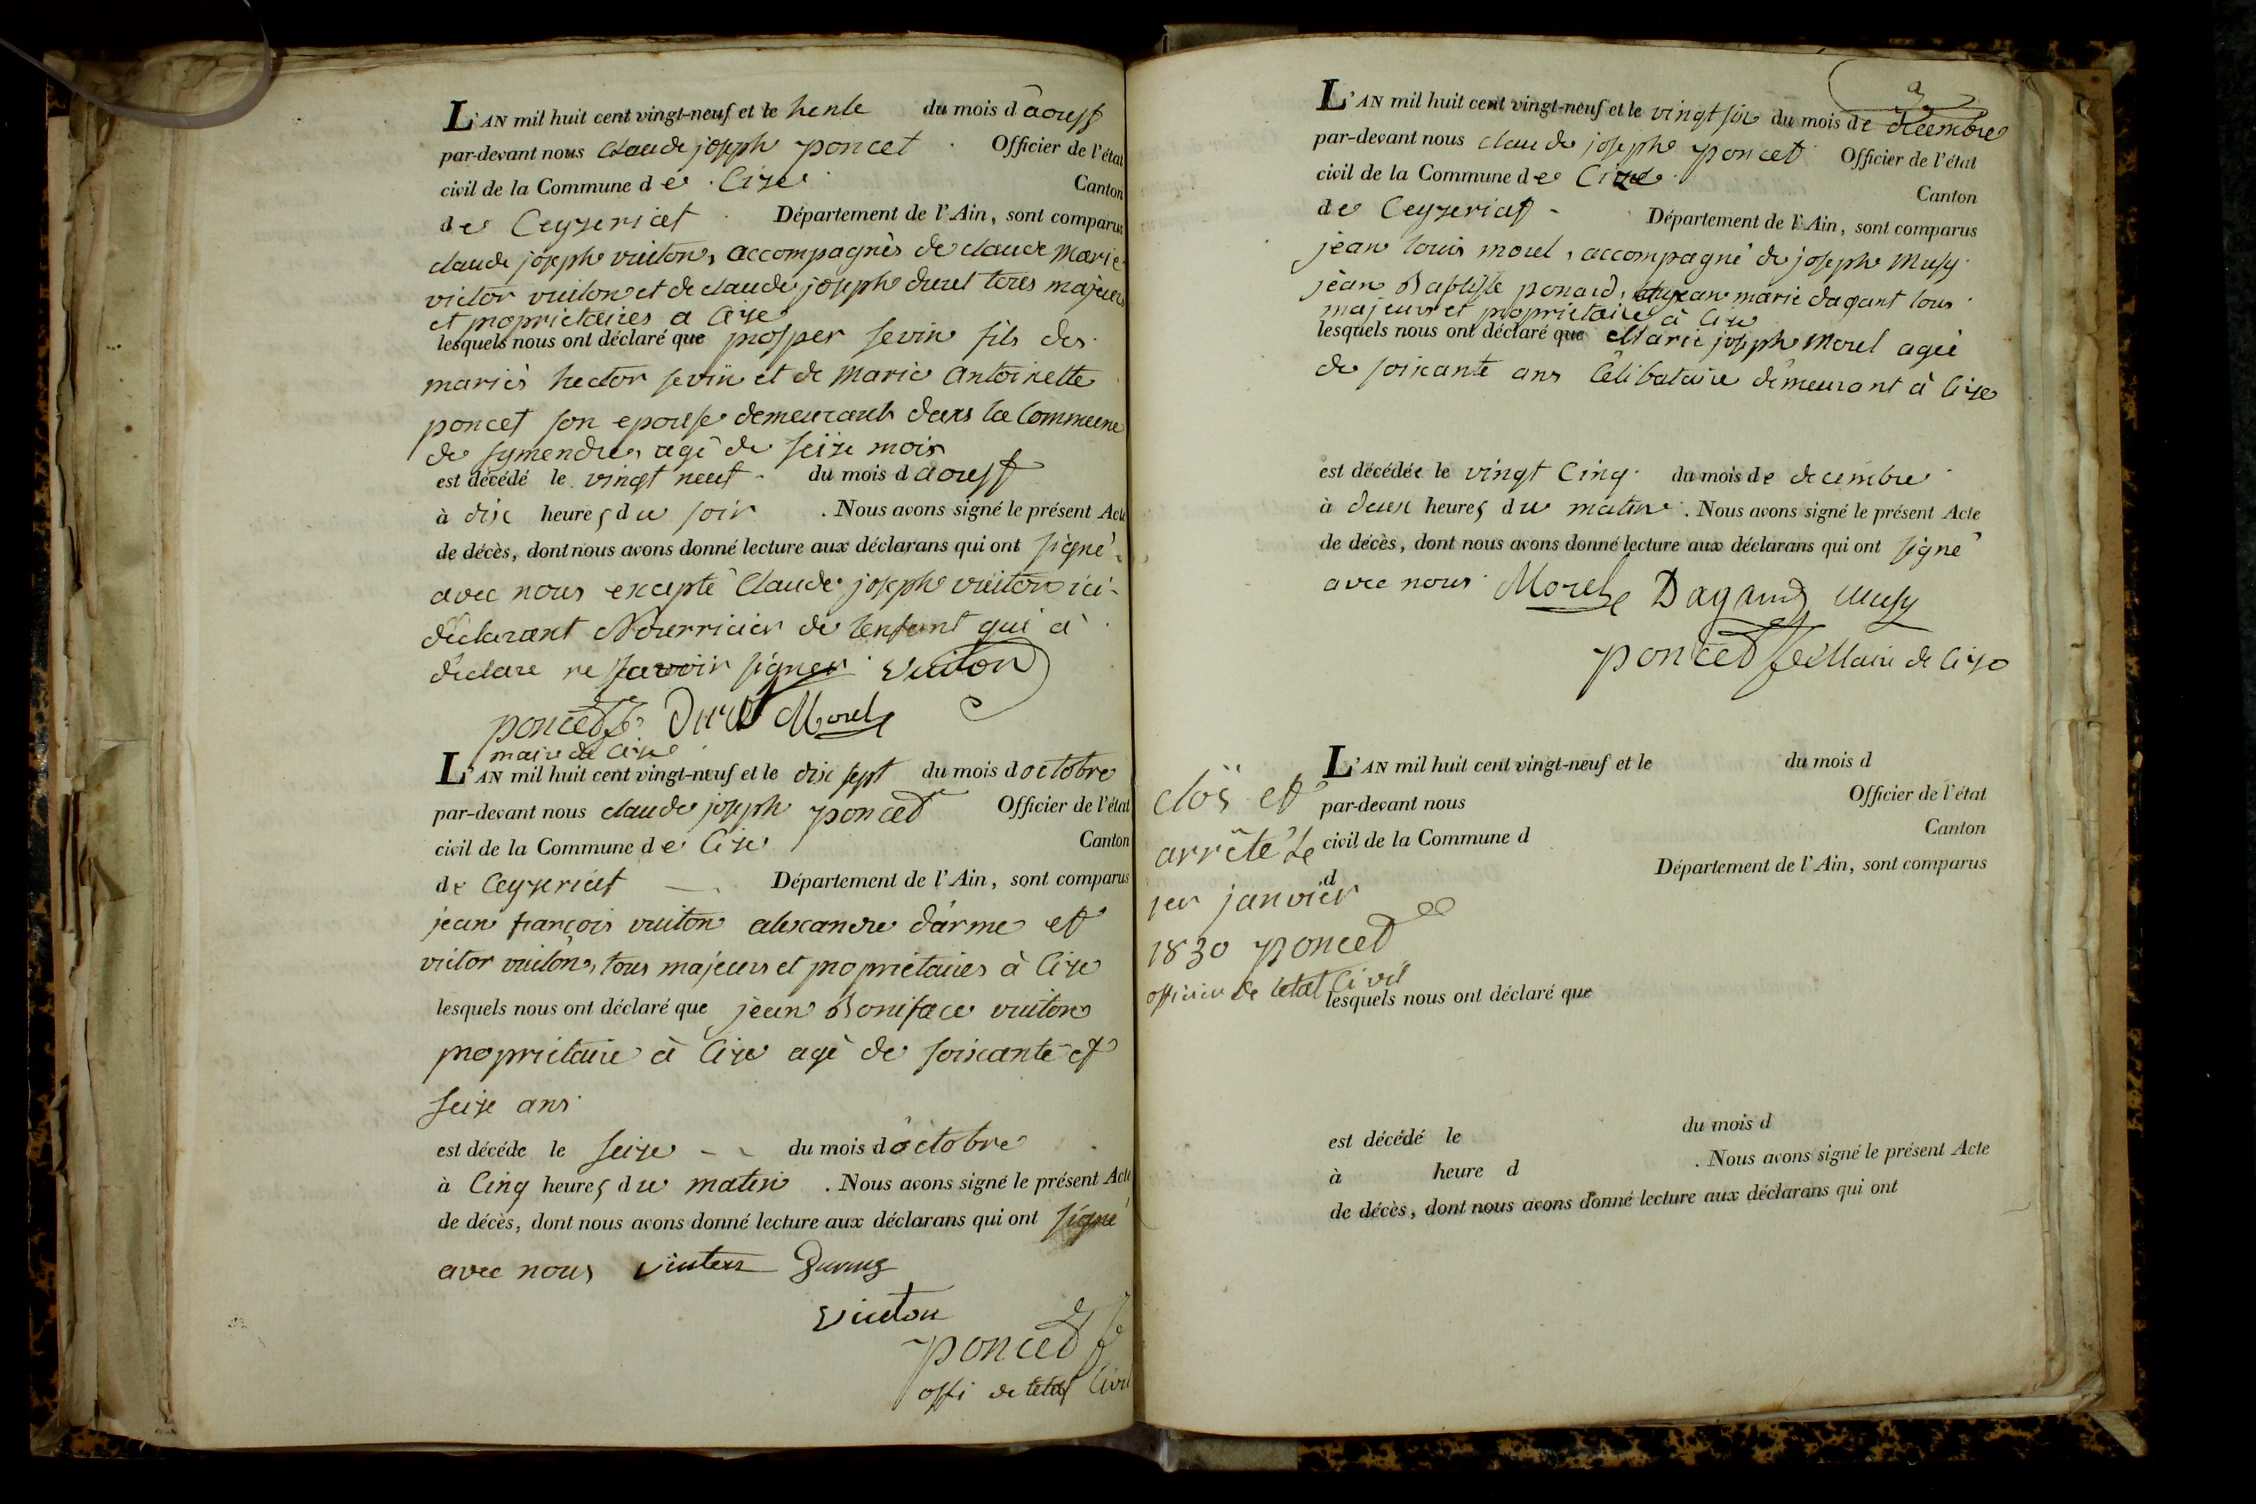 L'AN mil huit cent vingt-neuf et le trente du mois d aoust
par-devant nous claude joseph poncet Officier de l'état
civil de la Commune de Cize Canton
de Ceyzeriat Département de l'Ain, sont comparus
claude joseph vuiton, accompagnés de claude Marie
victor vuiton et de claude joseph duret tous majeurs
et proprietaires a Cize
lesquels nous ont déclaré que prosper sevin fils des
mariés hector sevin et de Marie Antoinette
poncet son epouse demeurants dans la Commune
de symendre, agé de seize mois
est décédé le vingt neuf du mois d aoust
à dix heures du soir . Nous avons signé le présent Acte
de décès, dont nous avons donné lecture aux déclarans qui ont signé
avec nous excepté Claude joseph vuiton ici
déclarant Nourricier de lenfant qui à
déclare ne savoir signer vuiton
poncet Duret Morel
maire de Cize
L'AN mil huit cent vingt-neuf et le dix sept du mois d octobre
par-devant nous claude joseph poncet Officier de l'état
civil de la Commune de Cize Canton
de Ceyzeriat Département de l'Ain, sont comparus
jean françois vuiton alexandre darme et
victor vuiton, tous majeurs et proprietaires à Cize
lesquels nous ont déclaré que jean Boniface vuiton
proprietaire à Cize agé de soixante et
seize ans
est décéde le seize du mois d octobre
à Cinq heures du matin . Nous avons signé le présent Acte
de décès, dont nous avons donné lecture aux déclarans qui ont signé
avec nous
vuiton
poncet
offi de letat Civil
L'AN mil huit cent vingt-neuf et le vingt six du mois de decembre
par-devant nous claude joseph poncet Officier de l'état
civil de la Commune de Cize Canton
de Ceyzeriat Département de l'Ain, sont comparus
jean louis morel, accompagné de joseph Musy
jean Baptiste ponard, et jean marie dagant tous
majeurs et proprietaire à Cize
lesquels nous ont déclaré que Marie joseph Morel agée
de soixante ans Célibataire démeurant à Cize
est décédée le vingt Cinq du mois de decembre
à deux heures du matin . Nous avons signé le présent Acte
de décès, dont nous avons donné lecture aux déclarans qui ont signé
avec nous Morel Dagand Musy
poncet Maire de Cize
L'AN mil huit cent vingt-neuf et le du mois d
par-devant nous Officier de l'état
civil de la Commune d Canton
d Département de l'Ain, sont comparus
clos et
arrêté le
1er janvier
1830 poncet
officier de letat Civil
lesquels nous ont déclaré que
est décédé le du mois d
à heure d . Nous avons signé le présent Acte
de décès, dont nous avons donné lecture aux déclarans qui ont